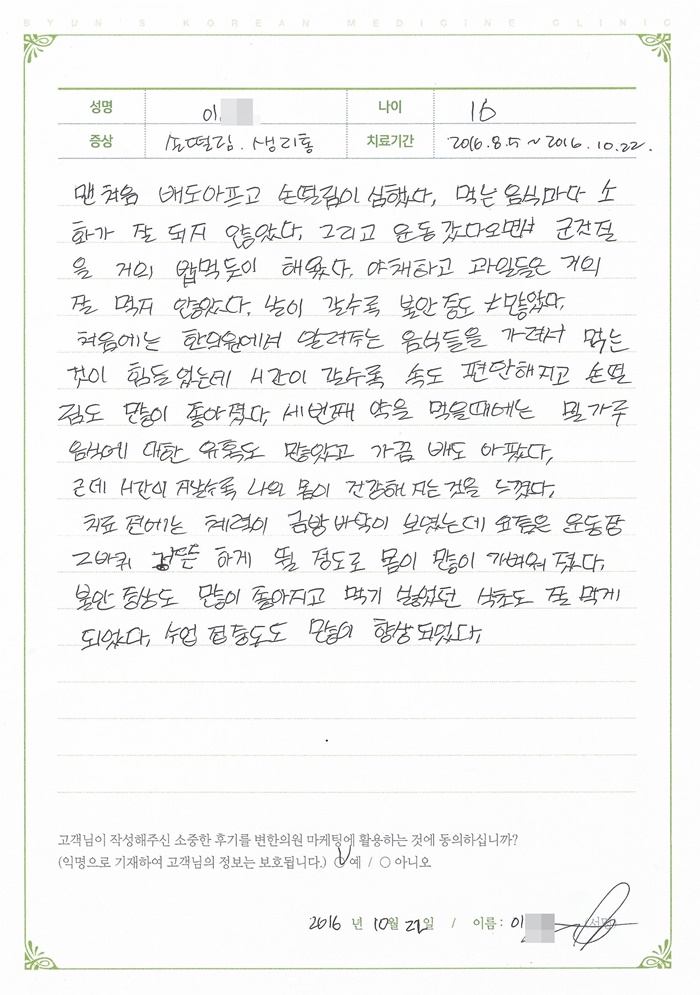 BYUN'S KOREAN MEDICINE CLINIC
성명 이 나이 16
증상 손떨림. 생리통 치료기간 2016.8.5 ~ 2016.10.22.
맨 처음 배도아프고 손떨림이 심했다, 먹는 음식마다 소
화가 잘 되지 않았다, 그리고 운동 갔다오면서 군것질
을 거의 밥먹듯이 해왔다, 야채하고 과일들은 거의
잘 먹지 않았다, 날이 갈수록 불안 증도 많았다,
처음에는 한의원에서 알려주는 음식들을 가려서 먹는
것이 힘들었는데 시간이 갈수록 속도 편안해지고 손떨
림도 많이 좋아졌다, 세번째 약을 먹을때에는 밀가루
음식에 대한 유혹도 많았고 가끔 배도 아팠다,
근데 시간이 지날수록 나의 몸이 건강해 지는것을 느꼈다,
치료 전에는 체력이 금방 바닥이 보였는데 요즘은 운동장
2바퀴 거뜬 하게 뛸 정도로 몸이 많이 가벼워 졌다,
불안 증상도 많이 좋아지고 먹기 싫었던 식초도 잘 먹게
되었다, 수업 집중도도 많이 향상되었다,
고객님이 작성해주신 소중한 후기를 변한의원 마케팅에 활용하는 것에 동의하십니까?
(익명으로 기재하여 고객님의 정보는 보호됩니다.) ○ 예 / ○ 아니오
2016 년 10월 22일 / 이름 : 이 (서명)